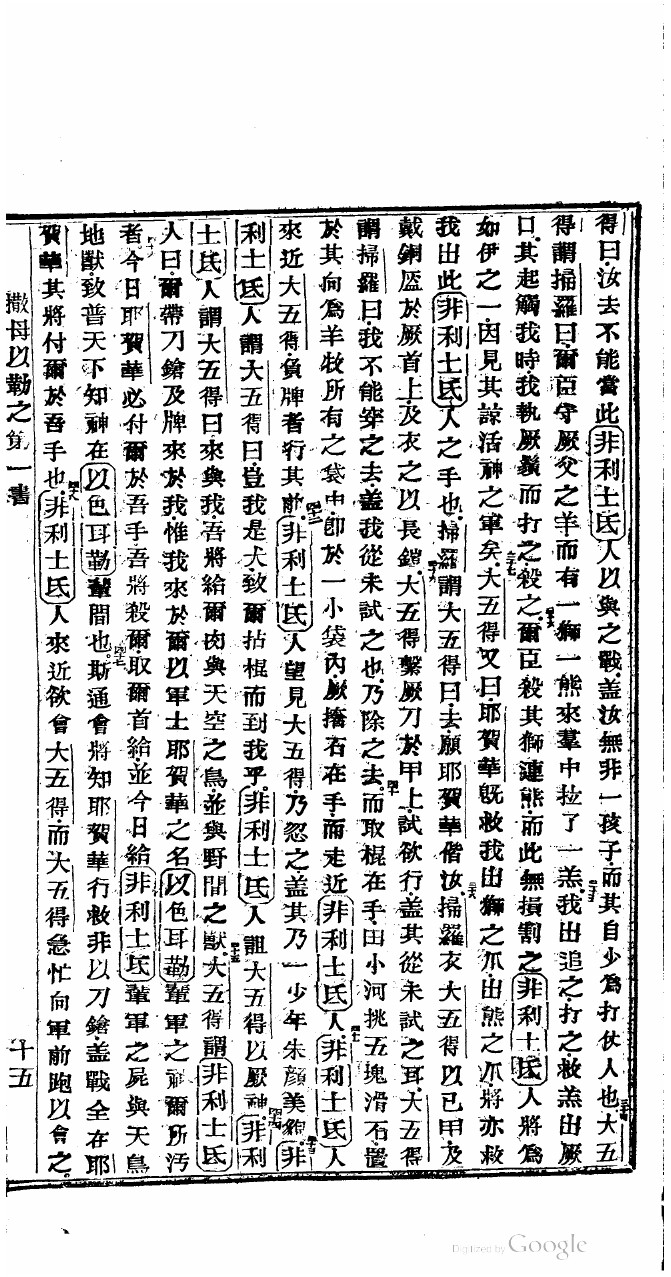 得曰汝去不能當此非利士氏人以與之戰蓋汝無非一孩子而其自少爲打仗人也三十四大五
得謂掃羅曰爾臣守厥父之羊而有一獅一熊來羣中拉了一羔三十五我出追之打之救羔出厥
口其起觸我時我執厥鬚而打之殺之三十六爾臣殺其獅連熊而此無損割之非利士氏人將爲
如伊之一因見其諒活神之軍矣三十七大五得又曰耶賀華旣救我出獅之爪出熊之爪將亦救
我出此非利士氏人之手也掃羅謂大五得曰去願耶賀華偕汝三十八掃羅衣大五得以己甲及
戴銅盔於厥首上及衣之以長鎧三十九大五得繫厥刀於甲上試欲行蓋其從未試之耳大五得
謂掃羅曰我不能穿之去蓋我從未試之也乃除之去四十而取棍在手由小河挑五塊滑石置
於其向爲羊牧所有之袋中卽於一小袋內厥擔石在手而走近非利士氏人四十一非利士氏人
來近大五得負牌者行其前四十二非利士氏人望見大五得乃忽之蓋其乃一少年朱顏美貌四十三非
利士氏人謂大五得曰豈我是犬致爾拈棍而到我乎非利士氏人詛大五得以厥神四十四非利
士氏人謂大五得曰來與我吾將給爾肉與天空之鳥並與野間之獸四十五大五得謂非利士氏
人曰爾帶刀鎗及牌來於我惟我來於爾以軍士耶賀華之名以色耳勒輩軍之神爾所汚
者四十六今日耶賀華必付爾於吾手吾將殺爾取爾首給並今日給非利士氏輩軍之屍與天鳥
地獸致普天下知神在以色耳勒輩間也四十七斯通會將知耶賀華行救非以刀鎗蓋戰全在耶
賀華其將付爾於吾手也四十八非利士氏人來近欲會大五得而大五得急忙向軍前跑以會之
撒母以勒之第一書 十五
Digitized by Google